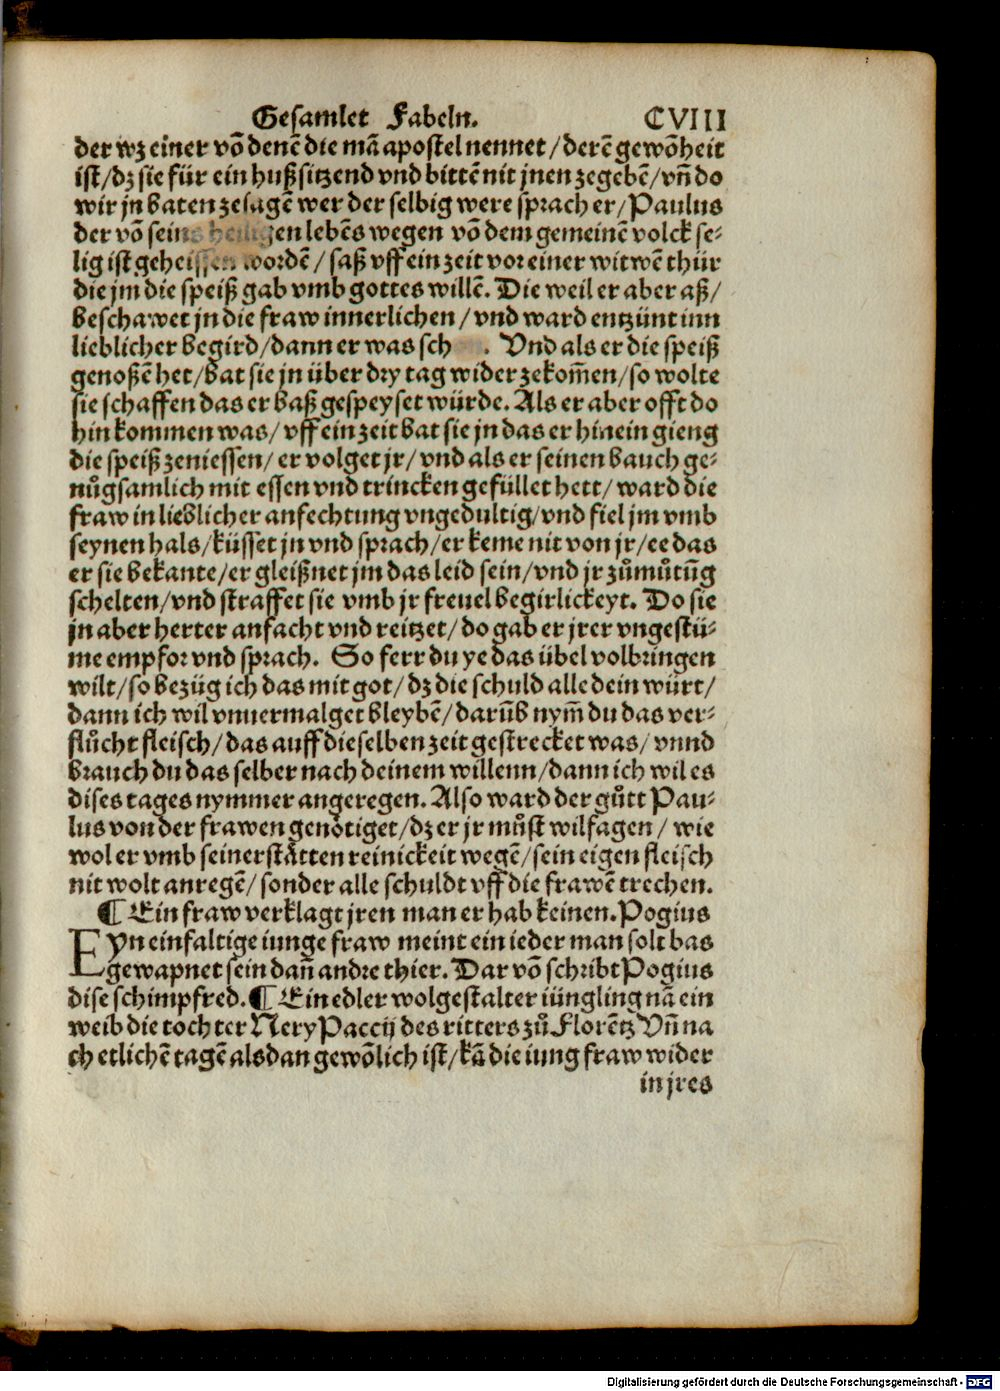 Gesamlet Fabeln. CVIII
der wz einer võ denē die mā apostel nennet / derē gewõheit
ist/dz sie für ein hußsitzend vnd bittē nit jnen zegebē/vñ do
wir jn baten zesagē wer der selbig were sprach er/Paulus
der võ seins heiligen lebēs wegen võ dem gemeinē volck se⸗
lig ist geheissen wordē / saß vff ein zeit vor einer witwē thür
die jm die speiß gab vmb gottes willē. Die weil er aber aß/
beschawet jn die fraw innerlichen / vnd ward entzünt inn
lieblicher begird/dann er was sch . Vnd als er die speiß
genoßē het/bat sie jn über dry tag wider zekom̄en/so wolte
sie schaffen das er baß gespeyset würde. Als er aber offt do
hin kommen was/ vff ein zeit bat sie jn das er hinein gieng
die speiß zeniessen/ er volget jr/ vnd als er seinen bauch ge⸗
nůgsamlich mit essen vnd trincken gefüllet hett/ ward die
fraw in lieblicher anfechtung vngedultig/vnd fiel jm vmb
seynen hals/küsset jn vnd sprach/er keme nit von jr/ee das
er sie bekante/er gleißnet jm das leid sein/vnd jr zůmůtūg
schelten/vnd straffet sie vmb jr freuel begirlickeyt. Do sie
jn aber herter anfacht vnd reitzet/ do gab er jrer vngestü⸗
me empfor vnd sprach. So ferr du ye das übel volbringen
wilt/so bezüg ich das mit got/dz die schuld alle dein würt/
dann ich wil vnuermalget bleybē/darūb nym̄ du das ver⸗
flůcht fleisch/das auff dieselben zeit gestrecket was/ vnnd
brauch du das selber nach deinem willenn/dann ich wil es
dises tages nymmer angeregen. Also ward der gůtt Pau⸗
lus von der frawen genötiget/dz er jr můst wilfagen / wie
wol er vmb seiner stätten reinickeit wegē/sein eigen fleisch
nit wolt anregē/sonder alle schuldt vff die frawē trechen.
¶ Ein fraw verklagt jren man er hab keinen. Pogius
EYn einfaltige iunge fraw meint ein ieder man solt bas
gewapnet sein dañ andre thier. Dar võ schribt Pogius
dise schimpfred. ¶ Ein edler wolgestalter iüngling nā ein
weib die tochter Nery Paccij des ritters zů Florētz Vñ na
ch etlichē tagē alsdan gewõlich ist/kā die iung fraw wider
in jres
Digitalisierung gefördert durch die Deutsche Forschungsgemeinschaft - DFG